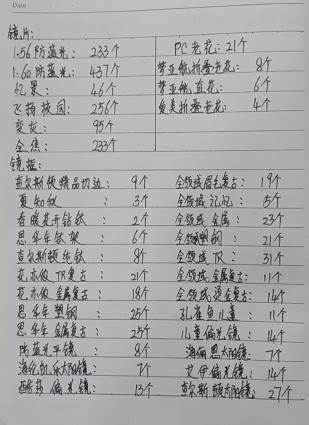 Date
镜片:
1.56防蓝光: 233个 PC老花: 21个
1.60防蓝光: 437个 梦亚航折叠老花: 8个
忆景: 46个 梦亚航直花: 6个
飞扬校园: 256个 负美折叠老花: 4个
变灰: 95个
全焦: 233个
镜框:
查尔斯顿精品切边: 9个 全领域眉毛复古: 19个
夏知奴: 3个 全领域记忆: 5个
春暖花开钻钛: 2个 全领域金属: 23个
思华年钛架: 6个 全领域塑钢: 21个
查尔斯顿乐钛: 8个 全领域TR: 31个
花亦微TR复古: 21个 全领域金属复古: 11个
花亦微金属复古: 18个 全领域烫金复古: 14个
思华年塑钢: 25个 孔雀鱼儿童: 11个
思华年金属复古: 25个 儿童偏光镜: 14个
防蓝光平镜: 8个 海俪恩太阳镜: 7个
海伦凯乐太阳镜: 7个 艾伊偏光镜: 14个
酷莎偏光镜: 13个 查尔斯顿太阳镜: 27个